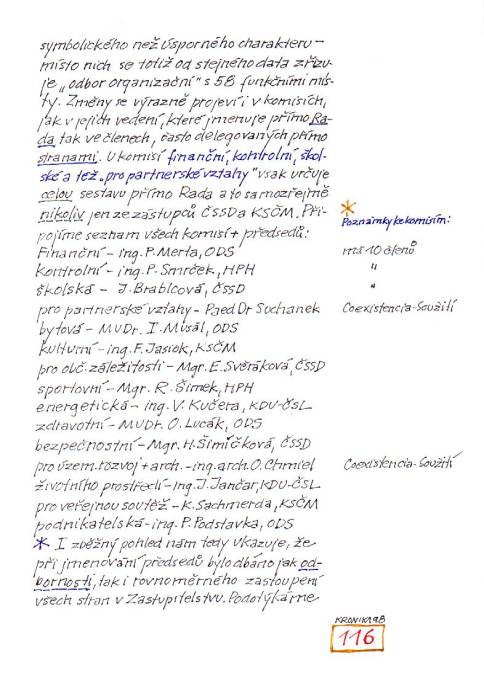 symbolického než úsporného charakteru –
místo nich se totiž od stejného data zřizu-
je „odbor organizační" s 58 funkčními mís-
ty. Změny se výrazně projeví i v komisích,
jak v jejich vedení, které jmenuje přímo Ra-
da tak ve členech, často delegovaných přímo
stranami. U komisí finanční, kontrolní, škol-
ské a též „pro partnerské vztahy" však určuje
celou sestavu přímo Rada a to samozřejmě
nikoliv jen ze zástupců ČSSD a KSČM. Při-
pojíme seznam všech komisí + předsedů:
* Poznámky ke komisím:
Finanční – ing. P. Merta, ODS má 10 členů
kontrolní – ing. P. Smrček, HPH "
školská – J. Brablcová, ČSSD "
pro partnerské vztahy – Paed Dr Suchanek Coexistencia-Soužití
bytová – MUDr. I. Musál, ODS
kulturní – ing. F. Jasiok, KSČM
pro obč. záležitosti – Mgr. E. Svěráková, ČSSD
sportovní – Mgr. R. Šimek, HPH
energetická – ing. V. Kučera, KDU-ČSL
zdravotní – MUDr. O. Lucák, ODS
bezpečnostní – Mgr. H. Šimíčková, ČSSD
pro územ. rozvoj + arch. – ing. arch. O. Chmiel Coexistencia-Soužití
životního prostředí – ing. J. Jančar, KDU-ČSL
pro veřejnou soutěž – K. Sachmerda, KSČM
podnikatelská – ing. P. Podstavka, ODS
* I zběžný pohled nám tedy ukazuje, že
při jmenování předsedů bylo dbáno jak od-
bornosti, tak i rovnoměrného zastoupení
všech stran v Zastupitelstvu. Podotýkáme
KRONIKA 98
116